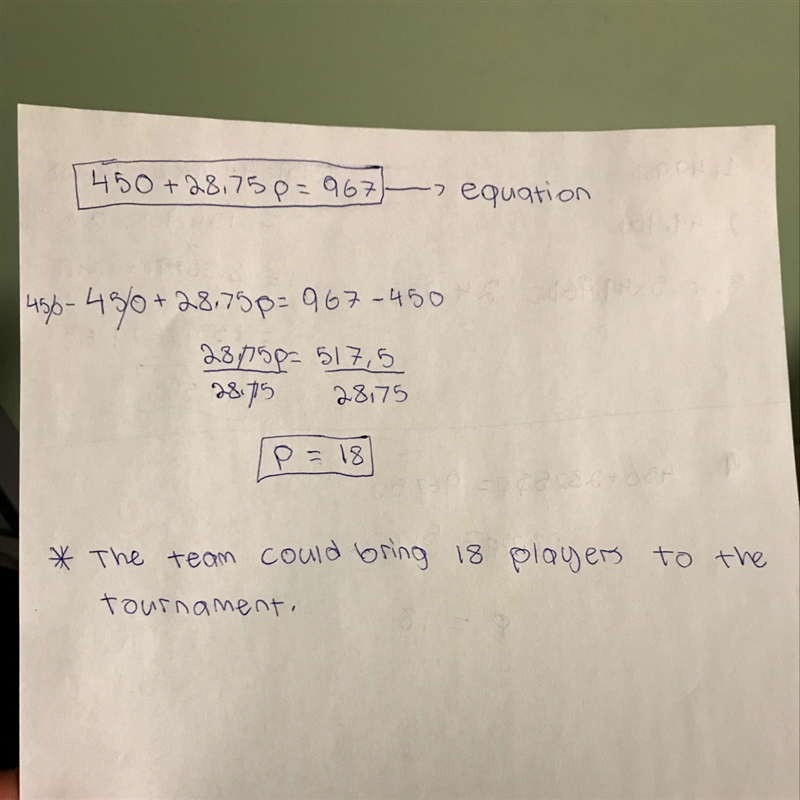 450 + 28.75p = 967 → equation
450 - 450 + 28.75p = 967 - 450
28.75p = 517.5
28.75 28.75
p = 18
* The team could bring 18 players to the
tournament.